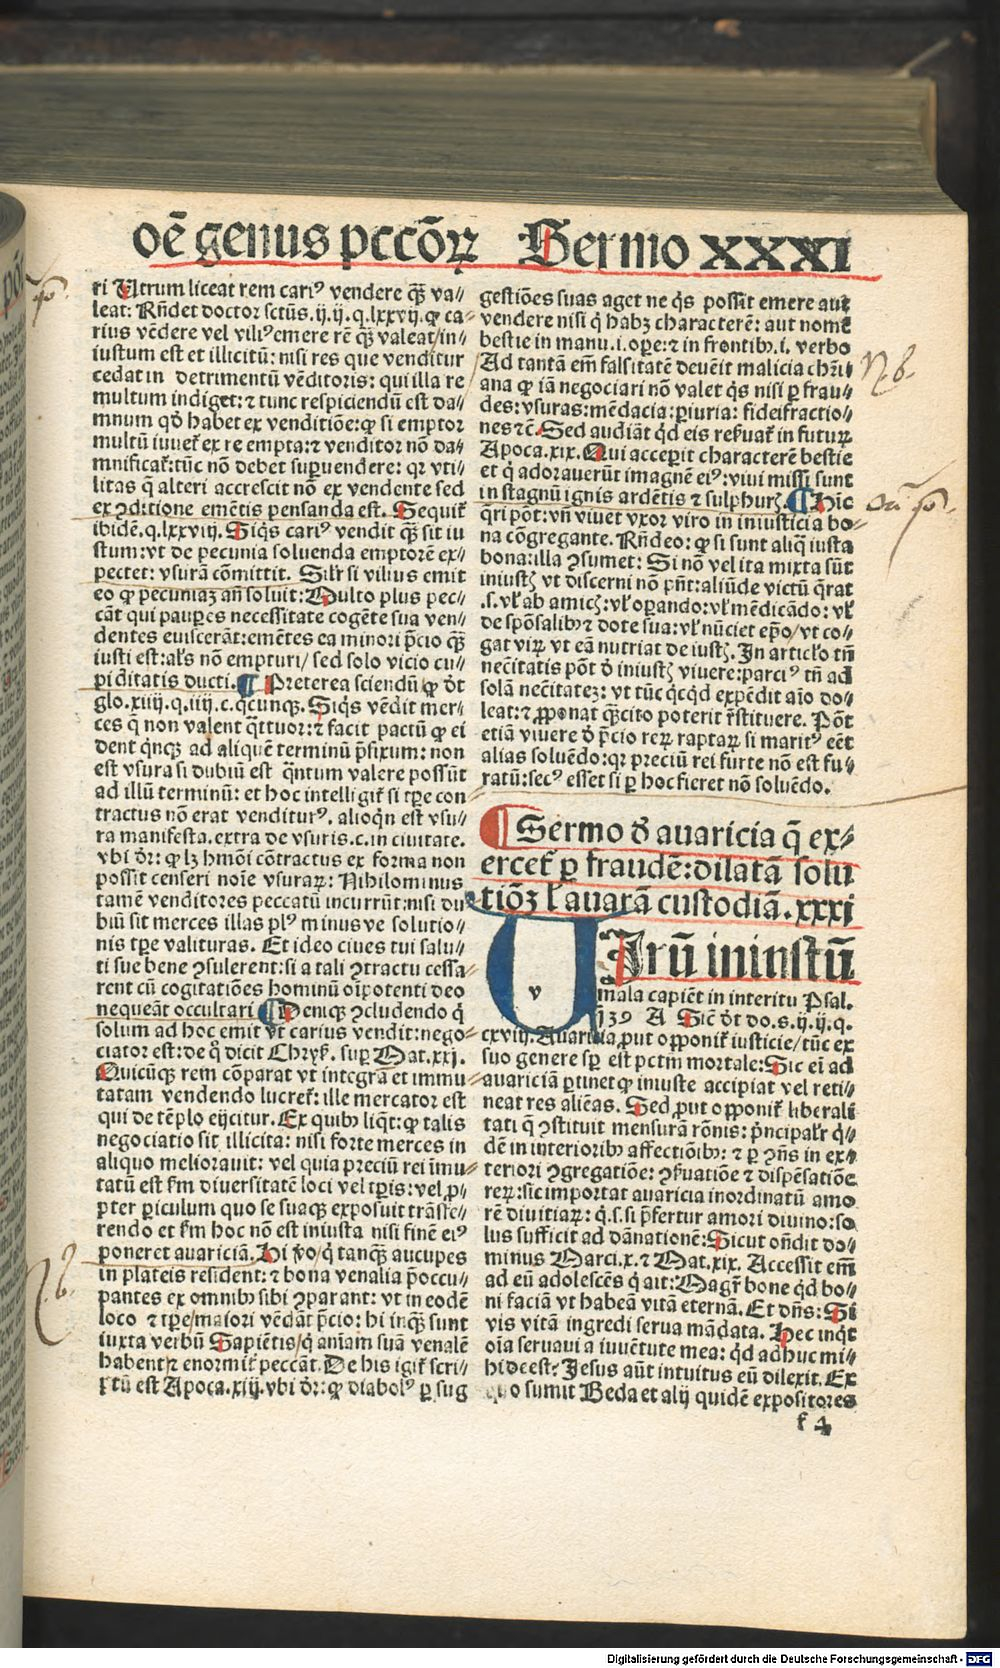 oē genus pccōꝝ Sermo XXXI
ri Utrum liceat rem cariꝰ vendere qȝ va⸗
leat: Rñdet doctor sctūs. ij. ij. q. lxxvij. ꝙ ca⸗
rius vēdere vel viliꝰ emere rē qȝ valeat/in⸗
iustum est et illicitū: nisi res que venditur
cedat in detrimentū vēditoris: qui illa re
multum indiget: ⁊ tunc respiciendū est da⸗
mnum qđ habet ex venditiōe: ꝙ si emptor
multū iuueť ex re empta: ⁊ venditor nō da⸗
mnificať: tūc nō debet supuendere: qꝛ vti⸗
litas q̄ alteri accrescit nō ex vendente sed
ex ꝯditione emētis pensanda est. Sequiť
ibidē. q. lxxviij. Siq̇s cariꝰ vendit qȝ sit iu
stum: vt de pecunia soluenda emptorē ex⸗
pectet: vsurā cōmittit. Silr̄ si vilius emit
eo ꝙ pecuniaȝ añ soluit: Multo plus pec⸗
cāt qui paupes necessitate cogēte sua ven⸗
dentes euiscerāt: emētes ea minori p̄cio qȝ
iusti est: al̄s nō empturi/ sed solo vicio cu⸗
piditatis ducti. ¶ Preterea sciendū ꝙ ōt
glo. xiiij. q. iiij. c. q̇cunqȝ. Siq̇s vēdit mer⸗
ces q̄ non valent q̄ttuor: ⁊ facit pactū ꝙ ei
dent q̇nqȝ ad aliquē terminū p̄fixum: non
est vsura si dubiū est q̄ntum valere possūt
ad illū terminū: et hoc intelligiť si tpe con
tractus nō erat venditurꝰ. alioqn̄ est vsu⸗
ra manifesta. extra de vsuris. c. in ciuitate.
vbi ōr: ꝙ lȝ hmōi cōtractus ex forma non
possit censeri noīe vsuraꝝ: Nihilominus
tamē venditores peccatū incurrūt: nisi du⸗
biū sit merces illas plꝰ minus ve solutio⸗
nis tpe valituras. Et ideo ciues tui salu⸗
ti sue bene ꝯsulerent: si a tali ꝯtractu cessa⸗
rent cū cogitatiōes hominū oīpotenti deo
nequeāt occultari ¶ Deniqȝ ꝯcludendo q̇
solum ad hoc emit vt carius vendit: nego⸗
ciator est: de q̇ dicit Chryś. sup Mat. xxj.
Quicūqȝ rem cōparat vt integrā et immu⸗
tatam vendendo lucreť: ille mercator est
qui de tēplo eijcitur. Ex quibꝰ liq̄t: ꝙ talis
negociatio sit illicita: nisi forte merces in
aliquo meliorauit: vel quia preciū rei īmu⸗
tatū est ẜm diuersitatē loci vel tpis: vel ꝓ⸗
pter piculum quo se suaqȝ exposuit trāsfe⸗
rendo et ẜm hoc nō est iniusta nisi finē eiꝰ
poneret auariciā. Hi v̄o/q̇ tanqȝ aucupes
in plateis resident: ⁊ bona venalia p̄occu⸗
pantes ex omnibꝰ sibi ꝯparant: vt in eodē
loco ⁊ tpe/maiori vēdāt p̄cio: hi inqȝ sunt
iuxta verbū Sapiētis/q̇ aniam suā venalē
habent/⁊ enormiť peccāt. De his igiť scri⸗
ptū est Apoca. xiij. vbi ōr: ꝙ diabolꝰ p sug
gestiōes suas aget ne q̇s possit emere aut
vendere nisi q̇ habȝ characterē: aut nomē
bestie in manu. i. ope: ⁊ in frontibꝰ. i. verbo
Ad tantā em̄ falsitatē deuēit malicia chr̄i⸗
ana ꝙ iā negociari nō valet q̇s nisi p frau⸗
des: vsuras: mēdacia: piuria: fideifractio⸗
nes ⁊c̄. Sed audiāt qđ eis reẜuať in futuꝝ
Apoca. xix. Qui acceperit characterē bestie
et q̇ adorauerūt imaginē eiꝰ: viui missi sunt
in stagnū ignis ardētis ⁊ sulphurꝭ. ¶ Hic
q̄ri pōt: vñ viuet vxor viro in iniusticia bo⸗
na cōgregante. Rñdeo: ꝙ si sunt aliq̄ iusta
bona: illa ꝯsumet: Si nō vel ita mixta sūt
iniustꝭ vt discerni nō pn̄t: aliūde victū q̄rat
.s. vł ab amicꝭ: vł opando: vł mēdicādo: vł
de spōsalibꝰ ⁊ dote sua: vł nūciet ep̄o/vt co⸗
gat viꝝ vt eā nutriat de iustꝭ. In articlo tn̄
necītatis pōt ō iniustꝭ viuere: parciꝰ tn̄ ad
solā necītateȝ: vt tūc q̇cqđ expēdit aīo do⸗
leat: ⁊ ꝓponat q̄cito poterit r̄stituere. Pōt
etiā viuere ō p̄cio reꝝ raptaꝝ si maritꝰ eēt
alias soluēdo: qꝛ preciū rei furte nō est fu⸗
ratū: secꝰ esset si p hoc fieret nō soluēdo.
¶ Sermo ō auaricia q̄ ex⸗
erceť p fraudē: dilatā solu
tiōȝ ł auarā custodiā. xxxj
VIrū iniustū
mala capiēt in interitu Psal.
139 A Sic ōt do. s. ij. ij. q.
cxviij. Auaricia, put opponiť iusticie/tūc ex
suo genere sp est pctm̄ mortale: Sic ei ad
auariciā ptinet ꝙ iniuste accipiat vel reti⸗
neat res aliēas. Sed, put opponiť liberali
tati q̄ ꝯstituit mensurā rōnis: p̄ncipalr̄ q̇⸗
dē in interioribꝰ affectiōibꝰ: ⁊ p ꝯn̄s in ex⸗
teriori ꝯgregatiōe: ꝯẜuatiōe ⁊ dispēsatiōe
reꝝ: sic importat auaricia inordinatū amo
rē diuitiaꝝ: q̇. s. si p̄fertur amori diuino: so
lus sufficit ad dānationē: Sicut on̄dit do⸗
minus Marci. x. ⁊ Mat. xix. Accessit em̄
ad eū adolescēs q̇ ait: Magr̄ bone qđ bo⸗
ni faciā vt habeā vitā eternā. Et dn̄s: Si
vis vitā ingredi serua mādata. Hec inq̄t
oīa seruaui a iuuētute mea: qđ adhuc mi⸗
hi deest? Jesus aūt intuitus eū dilexit. Ex
quo sumit Beda et alij quidē expositores
f 4
Nb.
Nb.
Digitalisierung gefördert durch die Deutsche Forschungsgemeinschaft - DFG